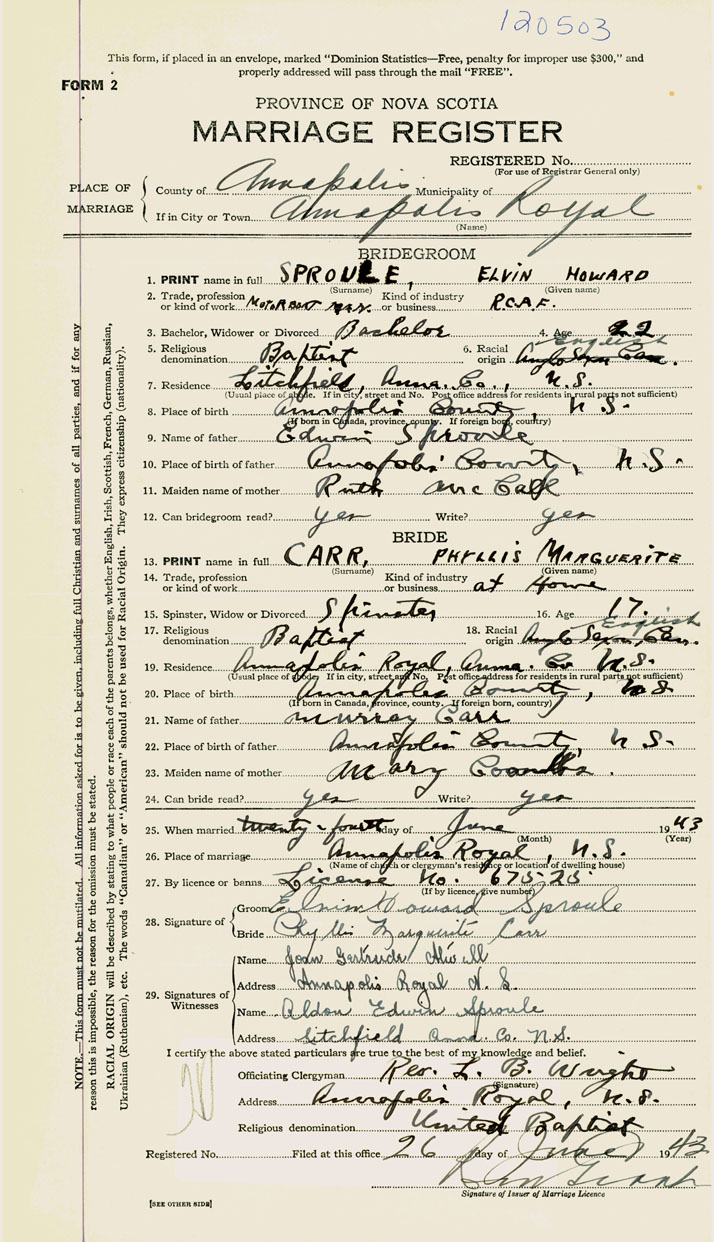 120503
This form, if placed in an envelope, marked "Dominion Statistics—Free, penalty for improper use $300," and
properly addressed will pass through the mail "FREE".
FORM 2
PROVINCE OF NOVA SCOTIA
MARRIAGE REGISTER
REGISTERED No.
(For use of Registrar General only)
PLACE OF MARRIAGE
County of Annapolis Municipality of
If in City or Town Annapolis Royal
(Name)
BRIDEGROOM
1. PRINT name in full SPROULE, ELVIN HOWARD
(Surname) (Given name)
2. Trade, profession or kind of work MOTORBOAT MAN. Kind of industry or business R.C.A.F.
3. Bachelor, Widower or Divorced Bachelor 4. Age 22
5. Religious denomination Baptist 6. Racial origin English Anglo Saxon Can.
7. Residence Litchfield, Anna. Co., N.S.
(Usual place of abode. If in city, street and No. Post office address for residents in rural parts not sufficient)
8. Place of birth Annapolis County, N.S.
(If born in Canada, province, county. If foreign born, country)
9. Name of father Edwin Sproule
10. Place of birth of father Annapolis County, N.S.
11. Maiden name of mother Ruth
12. Can bridegroom read? yes Write? yes
BRIDE
13. PRINT name in full CARR, PHYLLIS MARGUERITE
(Surname) (Given name)
14. Trade, profession or kind of work Kind of industry or business at Home
15. Spinster, Widow or Divorced Spinster 16. Age 17.
17. Religious denomination Baptist 18. Racial origin English Anglo Saxon, Can.
19. Residence Annapolis Royal, Anna. Co N.S.
(Usual place of abode. If in city, street and No. Post office address for residents in rural parts not sufficient)
20. Place of birth Annapolis County, N.S
(If born in Canada, province, county. If foreign born, country)
21. Name of father Murray Carr
22. Place of birth of father Annapolis County, N.S.
23. Maiden name of mother Mary Coombs.
24. Can bride read? yes Write? yes
25. When married twenty-fourth day of June 1943
(Month) (Year)
26. Place of marriage Annapolis Royal, N.S.
(Name of church or clergyman's residence or location of dwelling house)
27. By licence or banns License No. 67525
(If by licence, give number)
28. Signature of
Groom Elvin Howard Sproule
Bride Phyllis Marguerite Carr
29. Signatures of Witnesses
Name Joan Gertrude
Address Annapolis Royal N.S.
Name Aldon Edwin Sproule
Address Litchfield Anna. Co. N.S.
I certify the above stated particulars are true to the best of my knowledge and belief.
Officiating Clergyman Rev. L. B. Wright
(Signature)
Address Annapolis Royal, N.S.
Religious denomination United Baptist
Registered No. Filed at this office 26 day of June 1943
Signature of Issuer of Marriage Licence
[SEE OTHER SIDE]
NOTE.—This form must not be mutilated. All information asked for is to be given, including full Christian and surnames of all parties, and if for any
reason this is impossible, the reason for the omission must be stated.
RACIAL ORIGIN will be described by stating to what people or race each of the parents belongs, whether English, Irish, Scottish, French, German, Russian,
Ukrainian (Ruthenian), etc. The words "Canadian" or "American" should not be used for Racial Origin. They express citizenship (nationality).